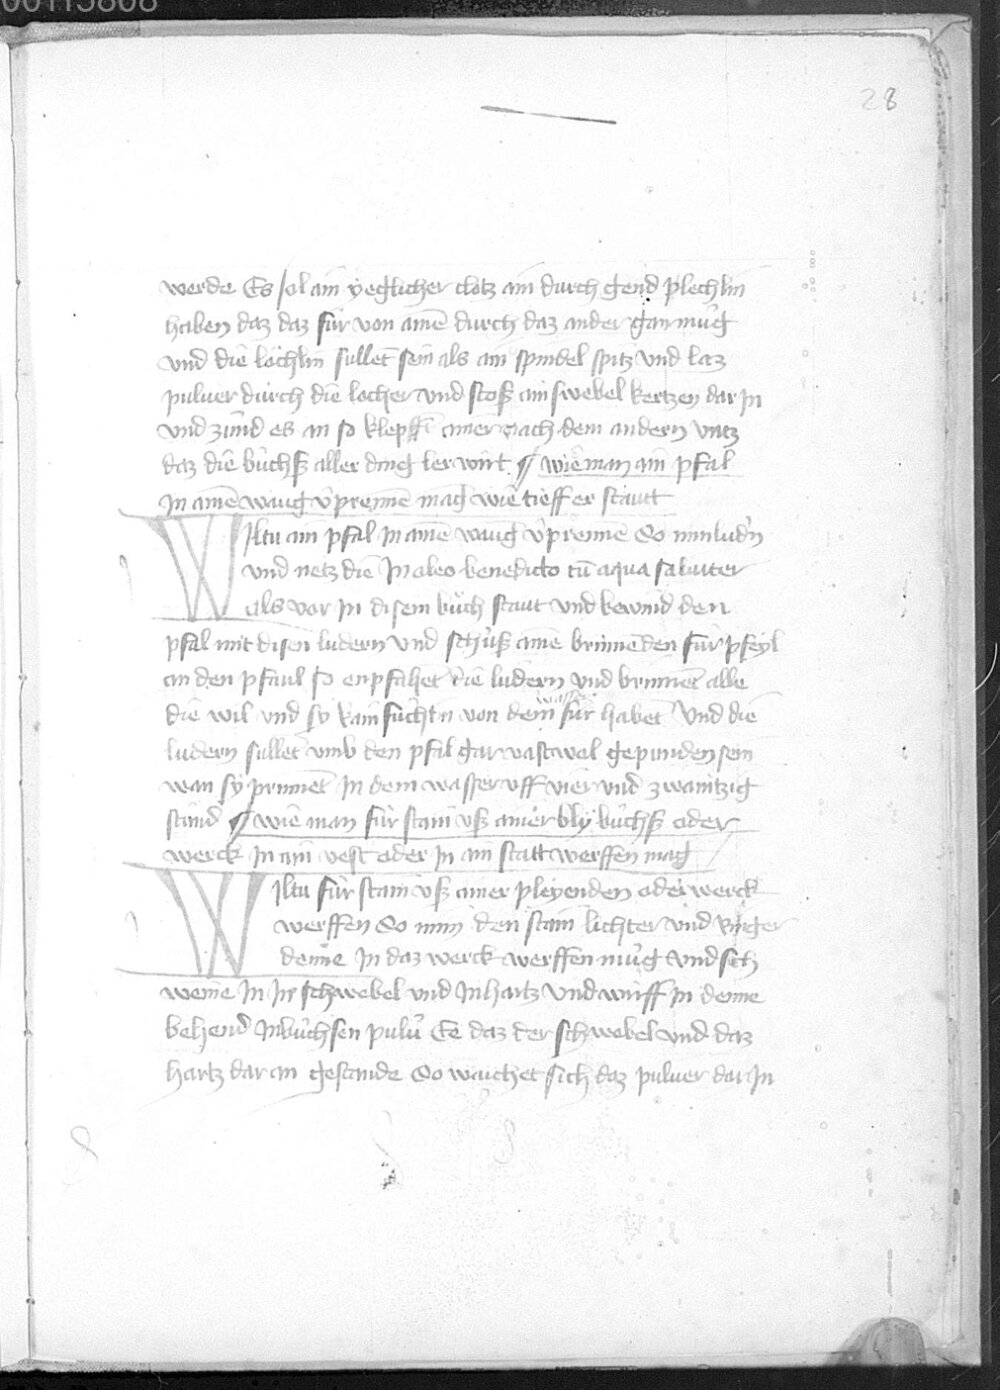 00115808
28
werde Es sol ain yeglicher clotz ain durch gend plechlin
haben daz daz für von ainē durch daz ander gan müg
vnd die löchlin sullēt sein als ain spindel spitz vnd laz
puluer durch die locher vnd stosß ain swebel kertzen dar jn
vnd zünd es an so klepfft ainer nach dem andern vntz
daz die büchß aller ding ler wirt ¶ wie man ain pfal
jn ainē waug v̓prennē mag wie tieff er staut
Wiltu ain pfal jn ainē waug v̓prennē So nim lud̓n
vnd netz die jn oleo benedicto cū aqua saluiter
als vor jn disem bůch staut vnd bewind den
pfal mit disen ludern vnd schüß ainē brinnenden für pfeyl
an den pfaul so enpfahet die ludern vnd brinnet alle
die wil vnd sy kain füchtn von dem für habet vnd die
wasser
ludern sullet vmb den pfal gar vast wol gepunden sein
wan sy prinnet jn dem wasser vff vier vnd zwaintzig
stund ¶ wie man für stain vß ainer bly büchß oder
werck jn ain vest oder jn ain statt werffen mag
Wiltu für stain vß ainer pleyenden oder werck
werffen So nim den stain lichter vnd ringer
denne jn daz werck werffen müg vnd sich
wenne jn jn schwebel vnd jn hartz vnd wirff jn denne
behend jn büchsen pulu̓ Ee daz der schwebel vnd daz
hartz dar an gestande So waichet sich daz puluer dar jn